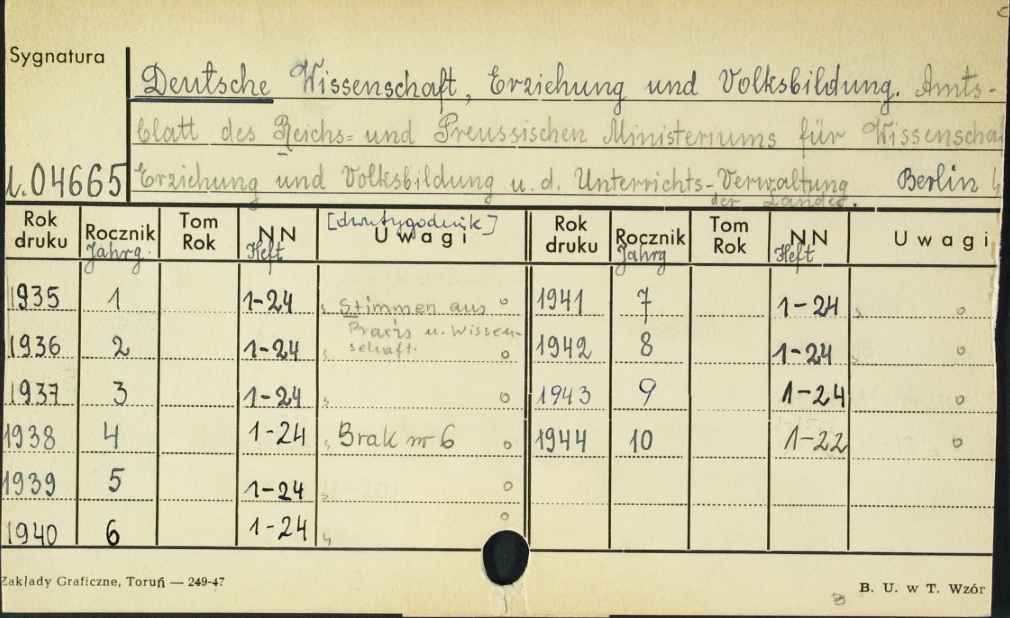 Sygnatura
Deutsche Wissenschaft, Erziehung und Volksbildung. Amts-
blatt des Reichs= und Preussischen Ministeriums für Wissenscha
04665 Erziehung und Volksbildung u. d. Unterrichts-Verwaltung Berlin
der Länder.
Rok druku Rocznik Jahrg. Tom Rok NN Heft [dwutygodnik] Uwagi Rok druku Rocznik Jahrg Tom Rok NN Heft Uwagi
1935 1 1-24 Stimmen aus 1941 7 1-24
Praxis u. Wissen-
schaft.
1936 2 1-24 1942 8 1-24
1937 3 1-24 1943 9 1-24
1938 4 1-24 Brak nr 6 1944 10 1-22
1939 5 1-24
1940 6 1-24
Zakłady Graficzne, Toruń — 249-47
B. U. w T. Wzór